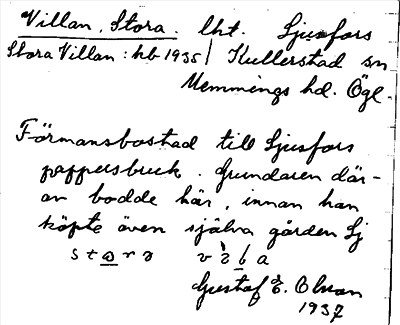 Villan, Stora. lht. Ljusfors
Stora Villan: hb 1935 / Kullerstad sn
Memmings hd. Ögl.
Förmansbostad till Ljusfors
pappersbruk. Grundaren där-
av bodde här, innan han
köpte även själva gården Lj
Gustaf E. Olsson
1937